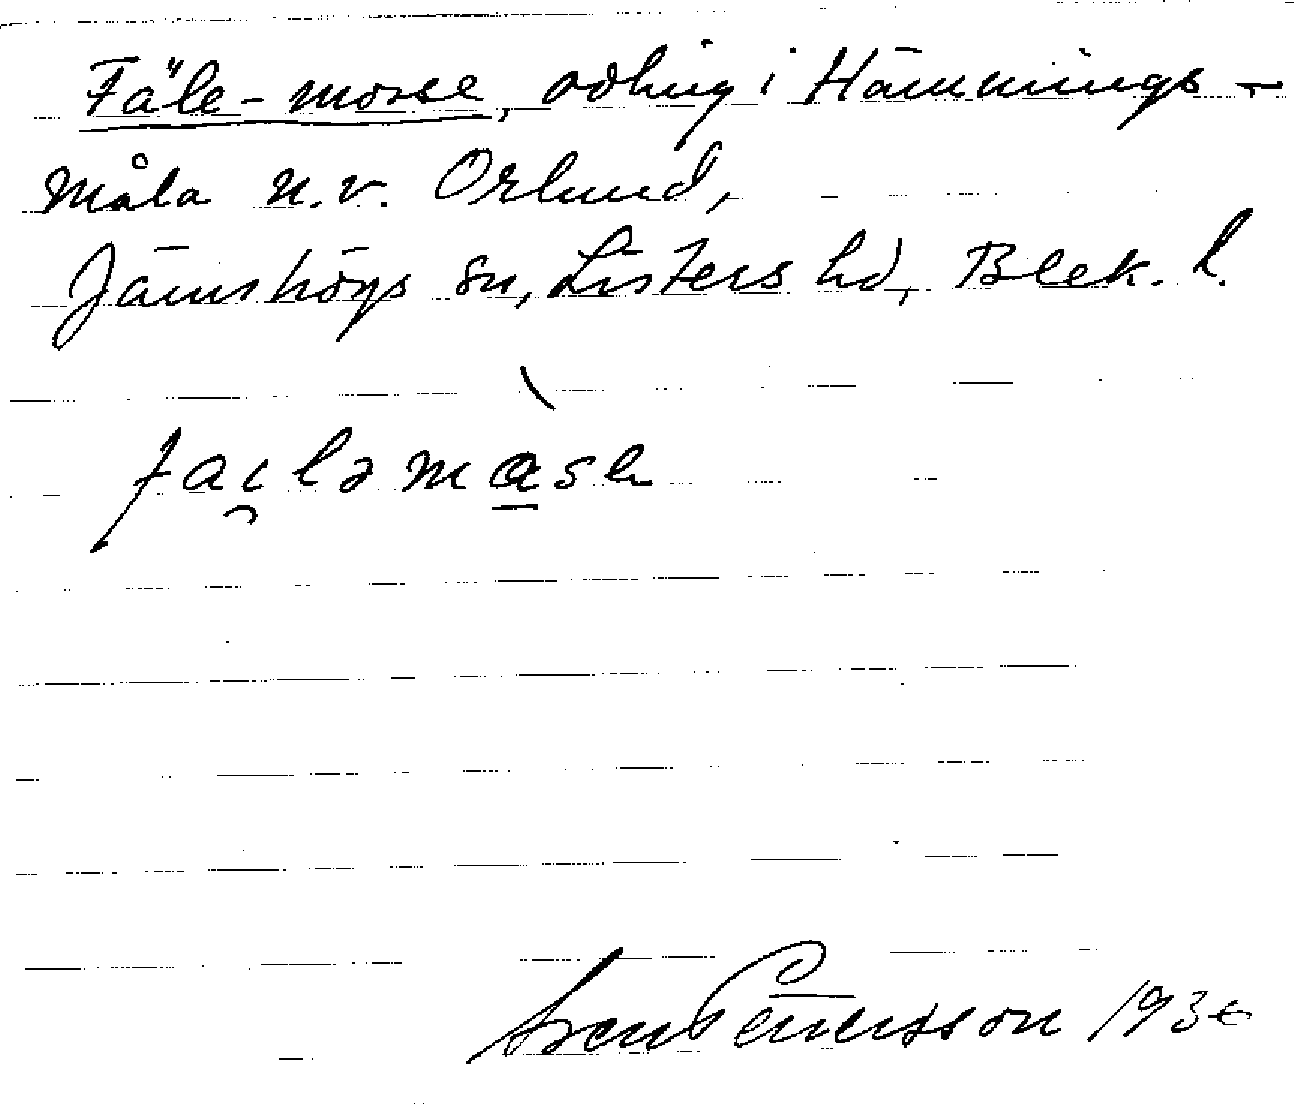 Fäle-mosse, odling i Hämmings-
måla n.v. Orlund,
Jämshögs sn, Listers hd, Blek. l.
Sven Pettersson 193